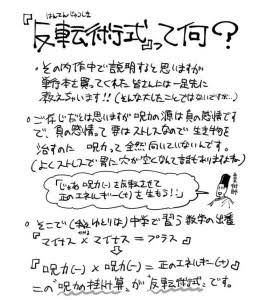 はんてんじゅつしき
『反転術式』って何?
・その内作中で説明すると思いますが
単行本を買ってくれた皆さんには一足先に
教えちゃいます!!(そんな大したことではないですが…)
・ご存じだとは思いますが呪力の源は負の感情です
で、負の感情って要はストレスなので生き物を
治すのに呪力って全然向いていないんです。
(よくストレスで胃に穴が空くなんて話もありますよね)
「じゃあ呪力(-)を反転させて
正のエネルギー(+)を生もう!」
・そこで(私とゆとりは)中学で習う数学の出番
『マイナス×マイナス=プラス』
『呪力(-)×呪力(-)=正のエネルギー(+)』
この"呪力の掛け算"が『反転術式』です。